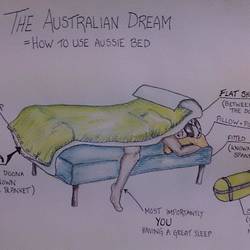 THE AUSTRALIAN DREAM
= HOW TO USE AUSSIE BED
FLAT SH
(BETWE
THE DO
PILLOW +
FITTED
(KNOWN
SPAN
DOONA
NOWN
BLANKET)
MOST IMPORTANTLY
YOU
HAVING A GREAT SLEEP